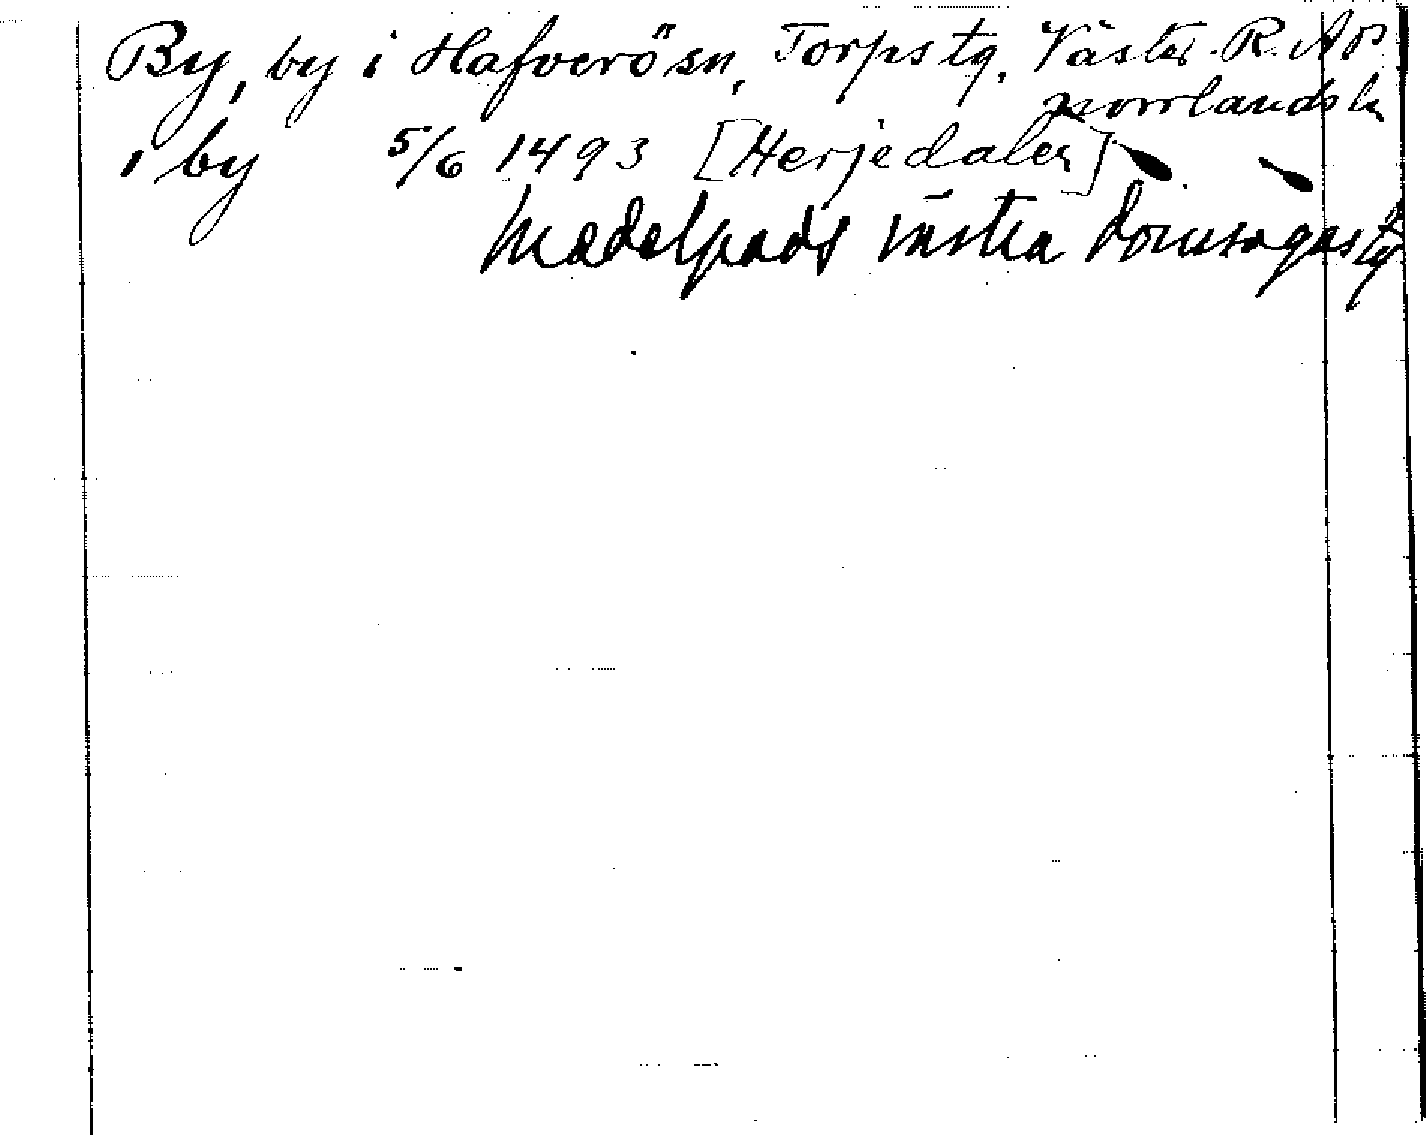 By, by i Hafverö sn, Torps tg, Väster- R. A. P.
norrlands ln
i by 5/6 1493 [Herjedalen]
Medelpads västra domsagas tg